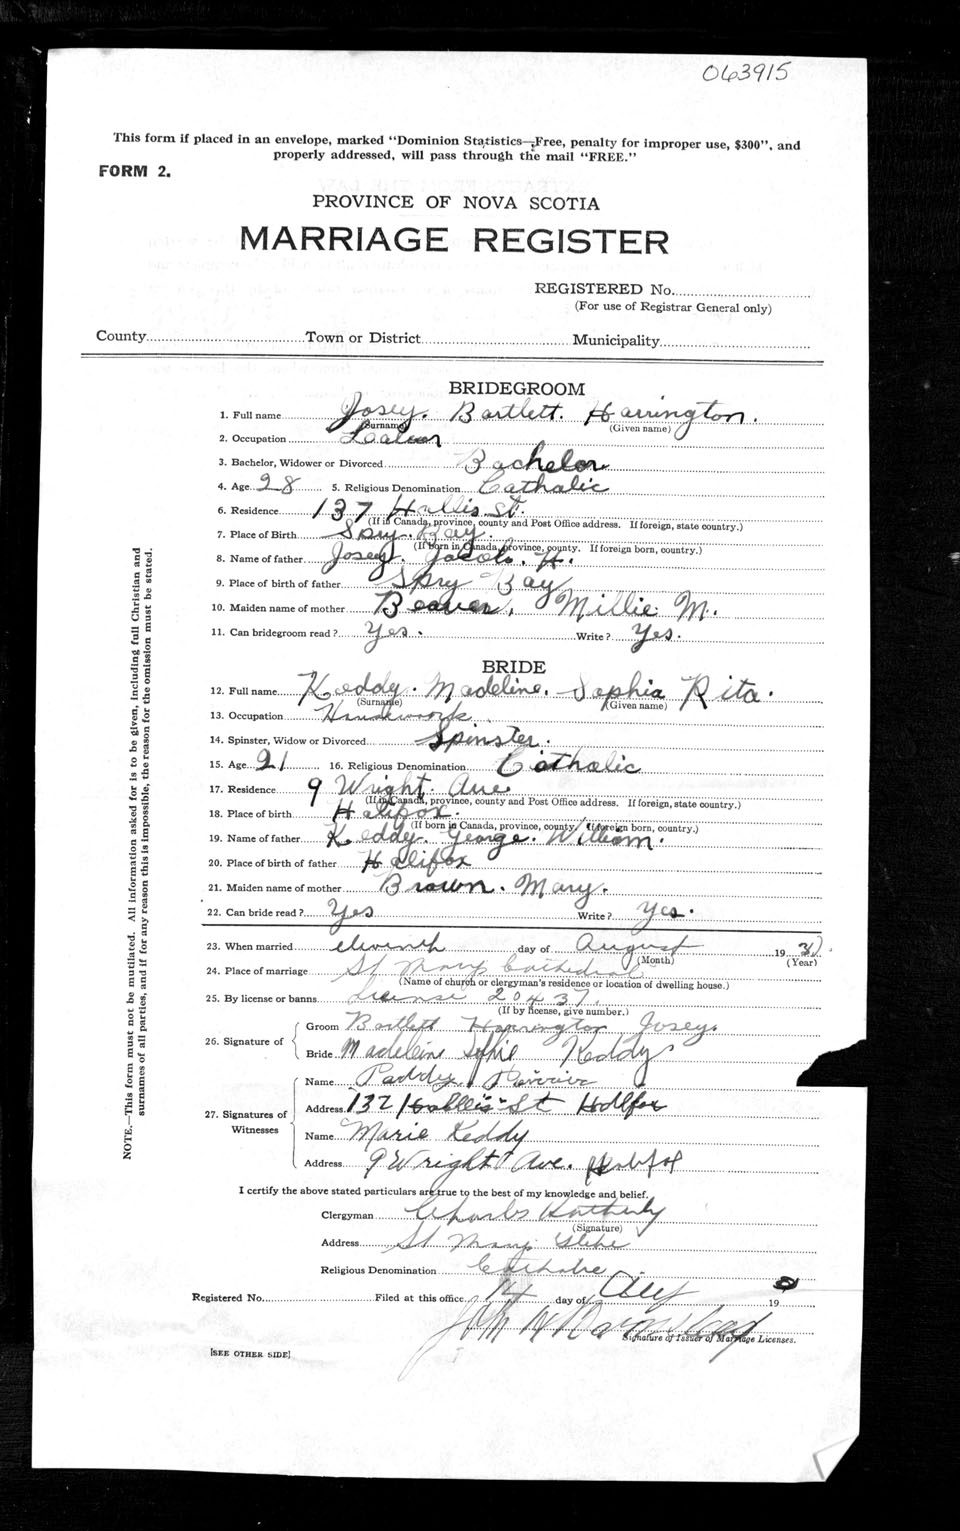 063915
This form if placed in an envelope, marked "Dominion Statistics—Free, penalty for improper use, $300", and
properly addressed, will pass through the mail "FREE."
FORM 2.
PROVINCE OF NOVA SCOTIA
MARRIAGE REGISTER
REGISTERED No.
(For use of Registrar General only)
County Town or District Municipality
BRIDEGROOM
1. Full name Josey. Bartlett. Harrington.
(Surname) (Given name)
2. Occupation
3. Bachelor, Widower or Divorced Bachelor
4. Age 28 5. Religious Denomination Catholic
6. Residence 137 Hollis St.
(If in Canada, province, county and Post Office address. If foreign, state country.)
7. Place of Birth Spry. Bay.
(If Born in Canada, province, county. If foreign born, country.)
8. Name of father Josey. Jacob. H.
9. Place of birth of father Spry Bay
10. Maiden name of mother Beaver, Millie M.
11. Can bridegroom read? Yes. Write? Yes.
BRIDE
12. Full name Keddy. Madeline. Sophia Rita.
(Surname) (Given name)
13. Occupation Housework
14. Spinster, Widow or Divorced Spinster.
15. Age 21 16. Religious Denomination Catholic
17. Residence 9 Wright. Ave
(If in Canada, province, county and Post Office address. If foreign, state country.)
18. Place of birth Halifax.
(If born in Canada, province, county. If foreign born, country.)
19. Name of father Keddy. George. William.
20. Place of birth of father Halifax
21. Maiden name of mother Brown. Mary.
22. Can bride read? Yes Write? Yes.
23. When married eleventh day of August 19
(Month) (Year)
24. Place of marriage St Marys Cathedral
(Name of church or clergyman's residence or location of dwelling house.)
25. By license or banns License 20437.
(If by license, give number.)
26. Signature of
Groom Bartlett Harrington Josey
Bride Madeline Sophie Keddy
27. Signatures of Witnesses
Name Paddy
Address 137 Hollis St Halifax
Name Marie Keddy
Address 9 Wright Ave. Halifax
I certify the above stated particulars are true to the best of my knowledge and belief.
Clergyman Charles
(Signature)
Address St Marys Glebe
Religious Denomination Catholic
Registered No. Filed at this office 14 day of Aug 19
John
Signature of Issuer of Marriage Licenses.
[SEE OTHER SIDE]
NOTE.—This form must not be mutilated. All information asked for is to be given, including full Christian and
surnames of all parties, and if for any reason this is impossible, the reason for the omission must be stated.